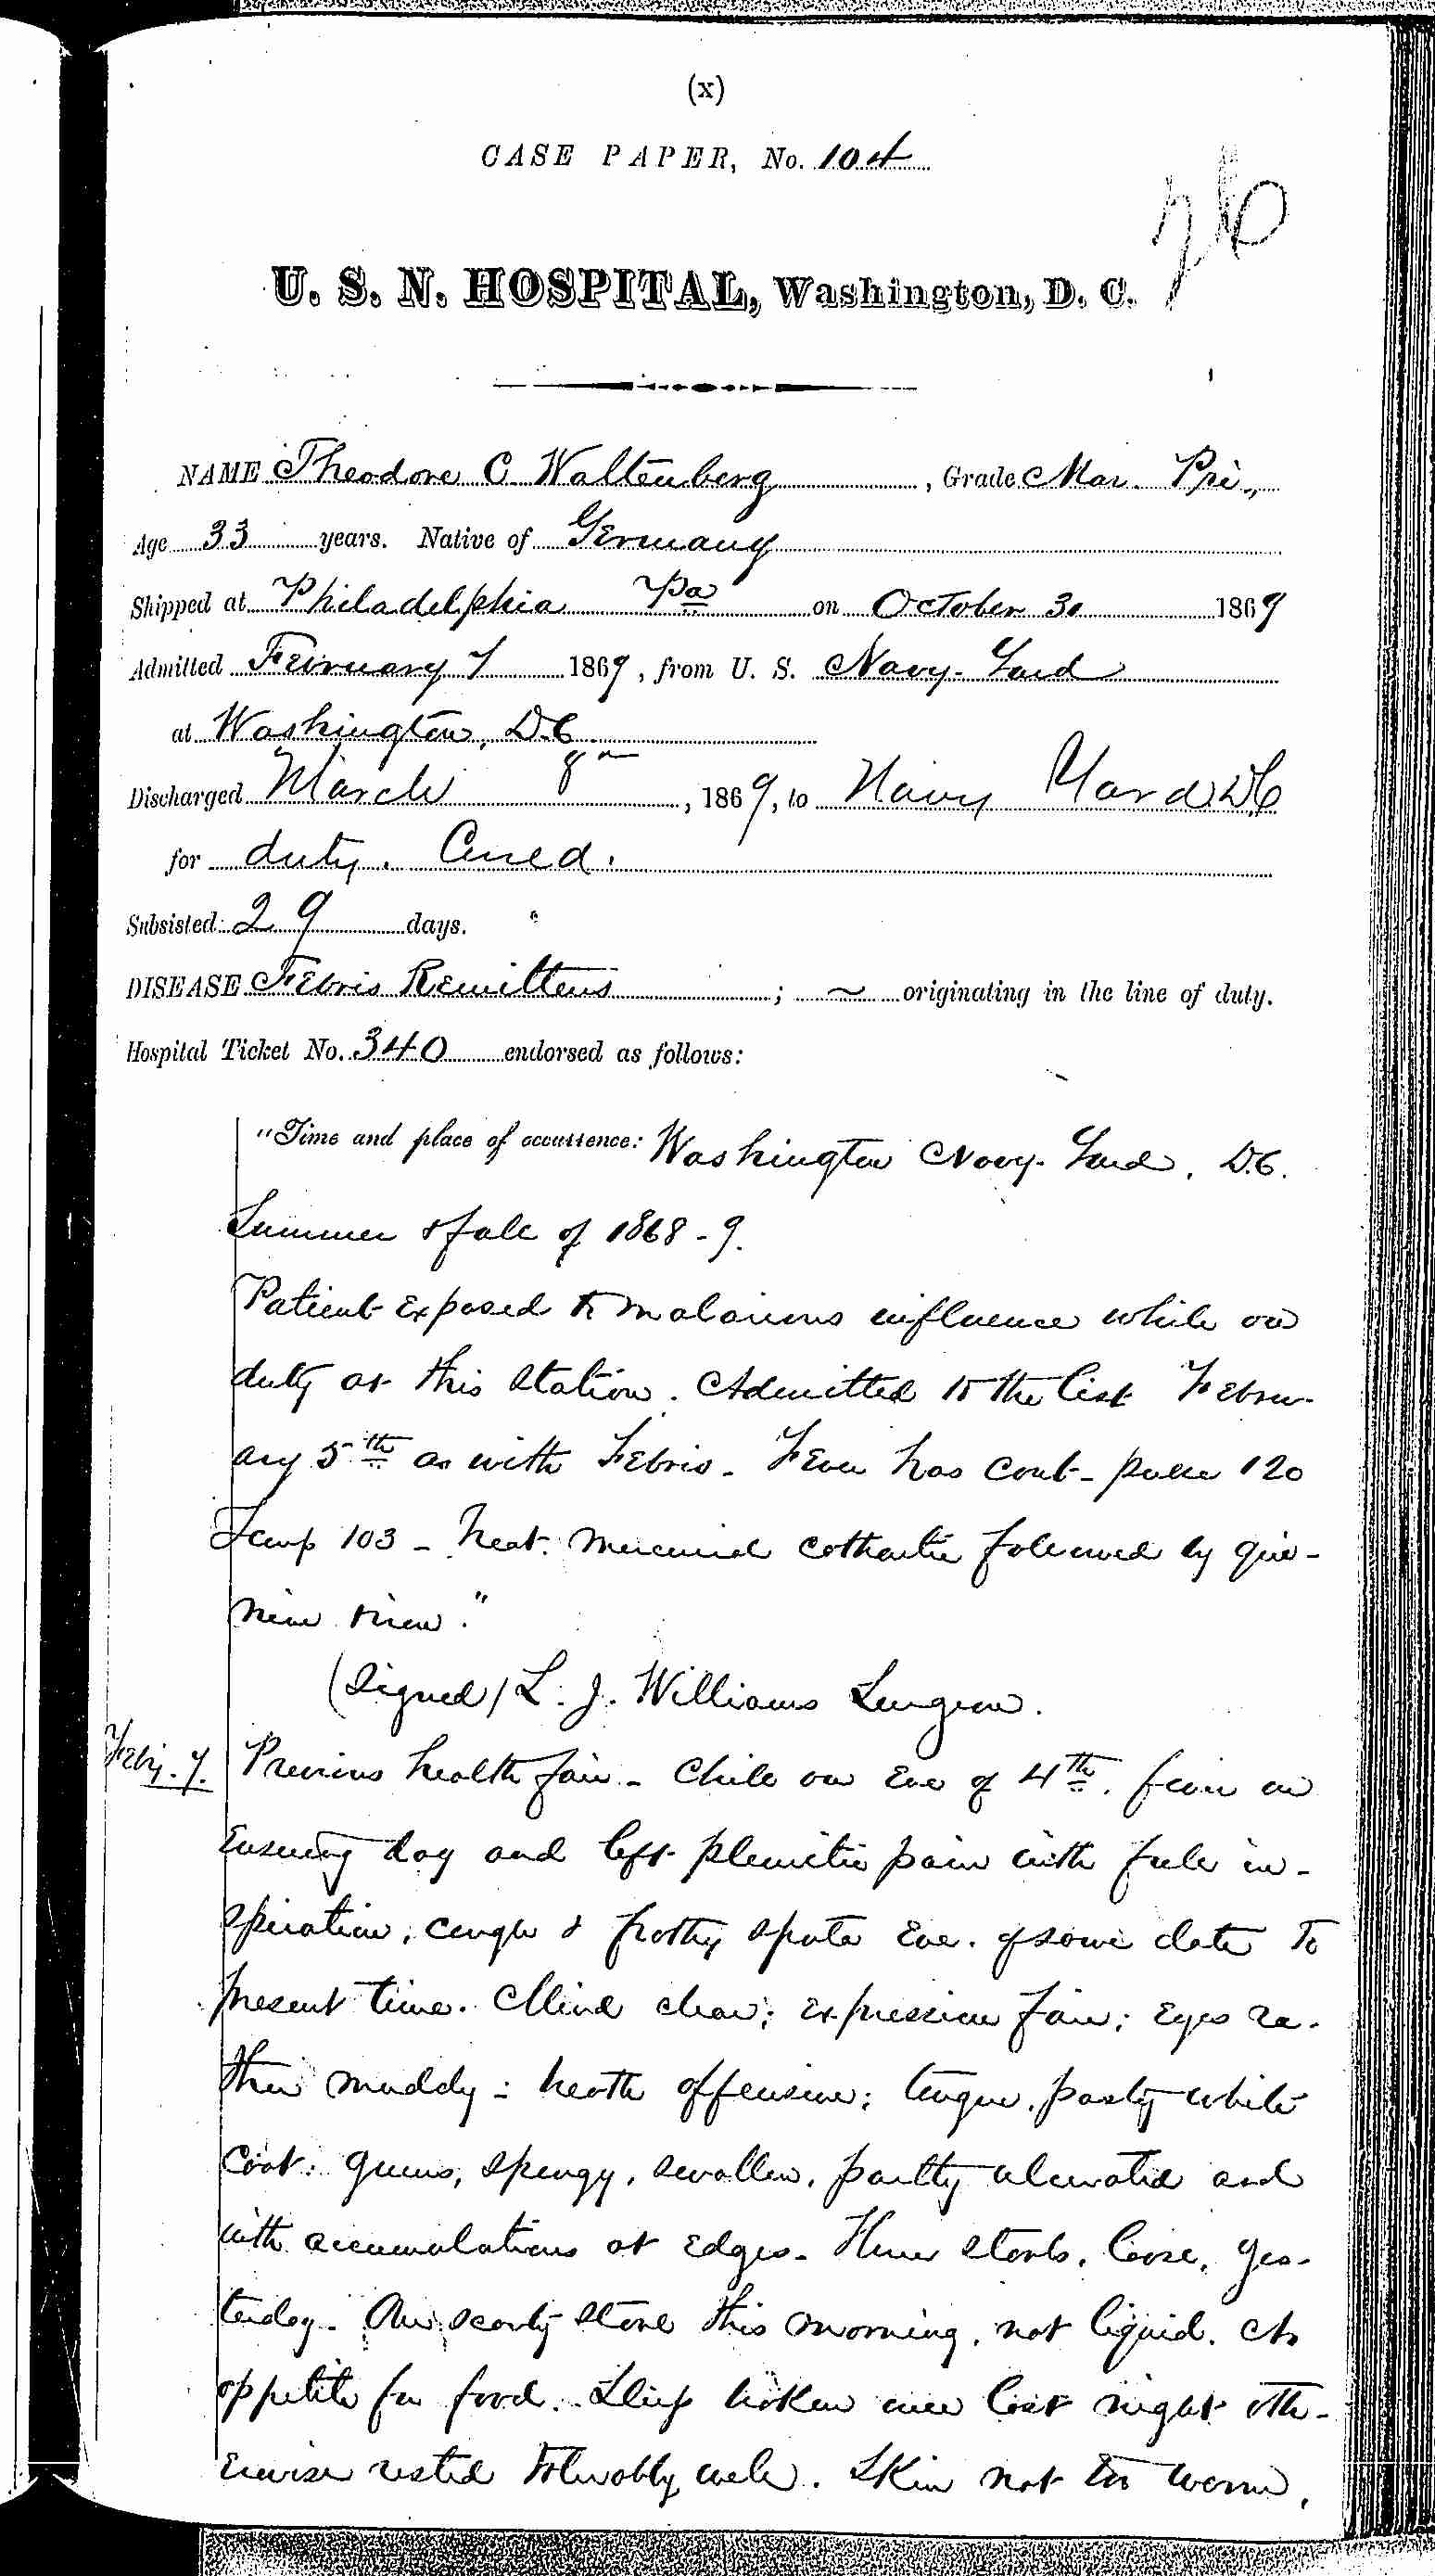 (x)
CASE PAPER, No. 104
26
U. S. N. HOSPITAL, Washington, D. C.
NAME Theodore C. Waltenberg, Grade Mar. Pri.,
Age 33 years. Native of Germany
Shipped at Philadelphia Pa on October 30 1869
Admitted February 7 1869, from U. S. Navy-Yard
at Washington, D.C.
Discharged March 8th, 1869, to Navy Yard D.C
for duty. Cured.
Subsisted 29 days.
DISEASE Febris Remittens; ~ originating in the line of duty.
Hospital Ticket No. 340 endorsed as follows:
"Time and place of occurrence: Washington Navy-Yard, D.C.
Summer & fall of 1868-9.
Patient exposed to malarious influence while on
duty at this Station. Admitted to the list Febru-
ary 5th as with Febris. Fever has cont- pulse 120
Temp 103 - Treat. Mercurial cathartic followed by qui-
nine
(Signed) L. J. Williams Surgeon.
Feby. 7. Previous health fair - Chill on Eve of 4th, fever on
Ensuing day and left pleuritic pain with full in-
spiration, cough & frothy sputa Eve. of same date to
present time. Mind clear; expression fair; Eyes ra-
ther muddy; breath offensive; tongue, pasty white
coat: gums, spongy, swollen, partly ulcerated and
with accumulations at edges. Three stools, loose, yes-
terday. One scanty stool this morning, not liquid. No
appetite for food. Sleep broken once last night oth-
erwise rested tolerably well. Skin not too warm,